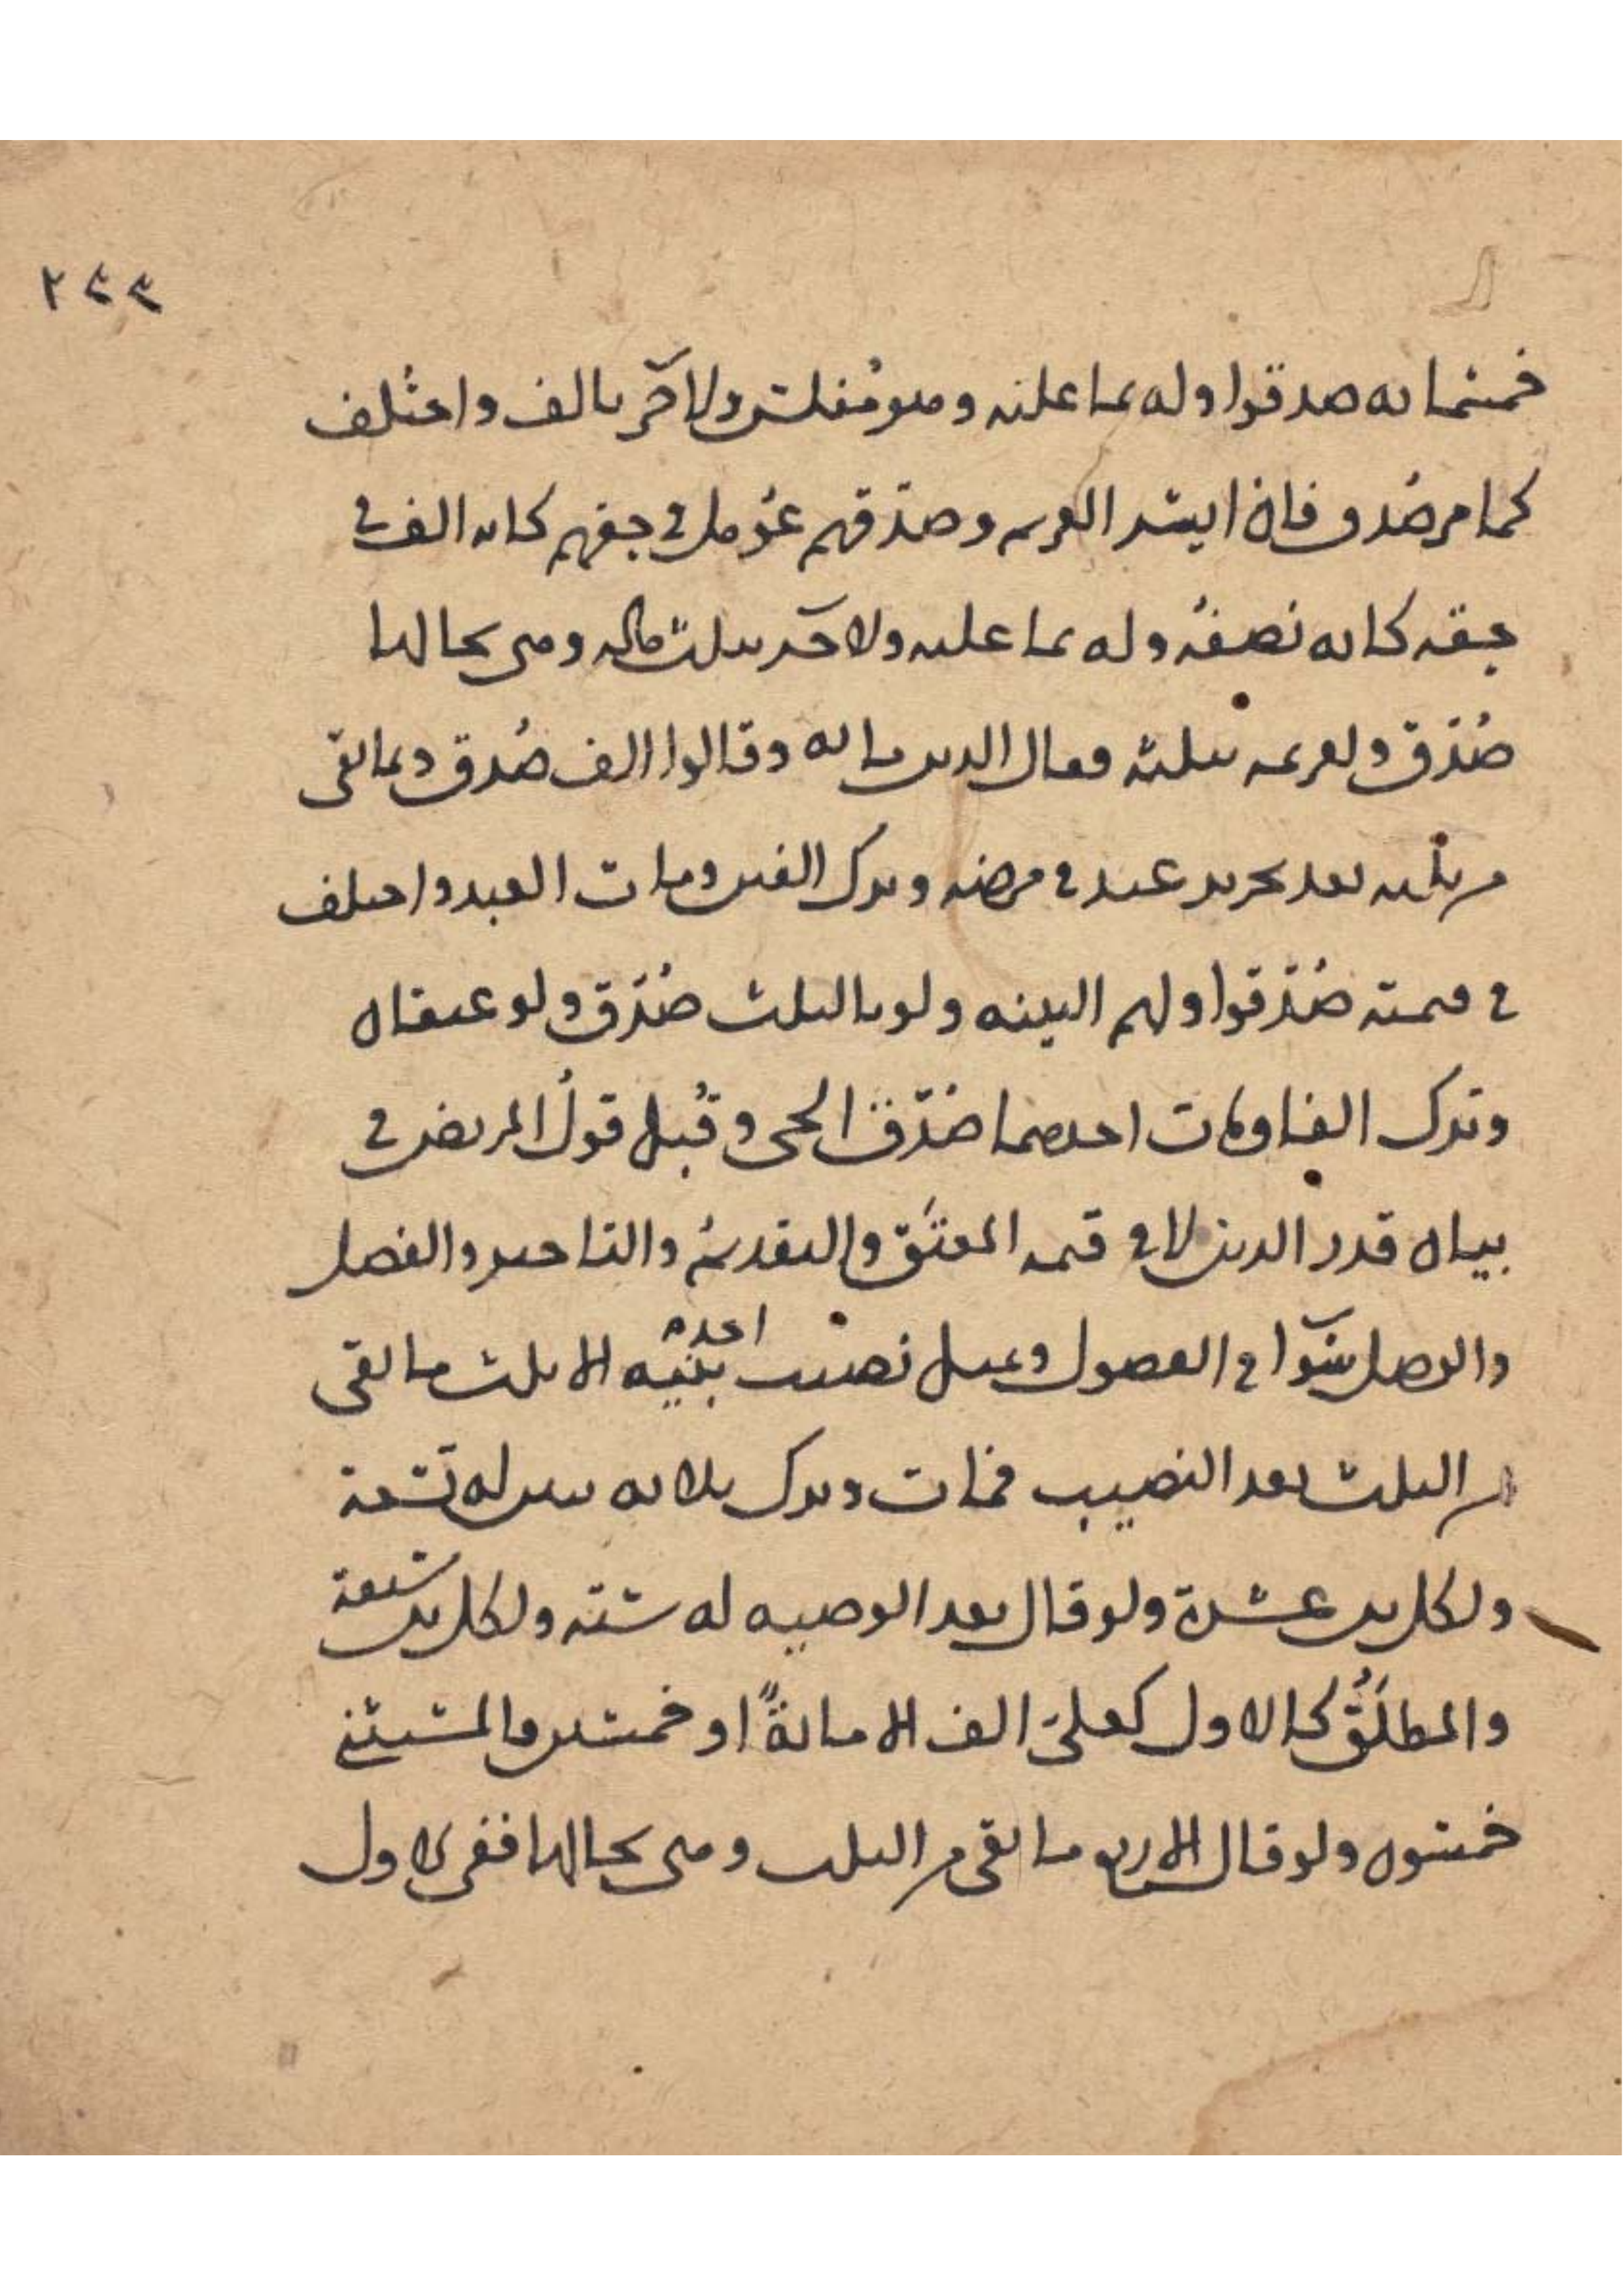 ٢٤٣
خمسمائه صدقوا وله بما عليه وهو مفلس ولآخر بالف واختلف
كما مر صدق فان ايسر الغريم وصدقهم عومل في حقهم كان الف في
حقه كانه نصفه وله بما عليه ولآخر بثلث ماله وهي بحالها
صدق ولغريمه بثلثه فقال الدين مايه وقالوا الف صدق وبما بقى
من ثلثه بعد تحرير عبد في مرضه وترك الفين ومات العبد واختلف
في قيمته صدقوا ولهم البينه ولو بالثلث صدق ولو عبدان
وترك الفا ومات احدهما صدق الحي وقبل قول المريض في
بيان قدر الدين لا في قيمه المعتق والتقديم والتاخير والفصل
والوصل سوا في الفصول وبمثل نصيب احد بنيه الا ثلث ما بقى
من الثلث بعد النصيب فمات وترك ثلاثه بنين له تسعة
ولكل ابن عشرة ولو قال بعد الوصيه له ستة ولكل ابن سبعة
والمطلق كالاول كعلي الف الا مائة او خمسين فالمستثنى
خمسون ولو قال الا ربع ما بقى من الثلث وهي بحالها ففي الاول